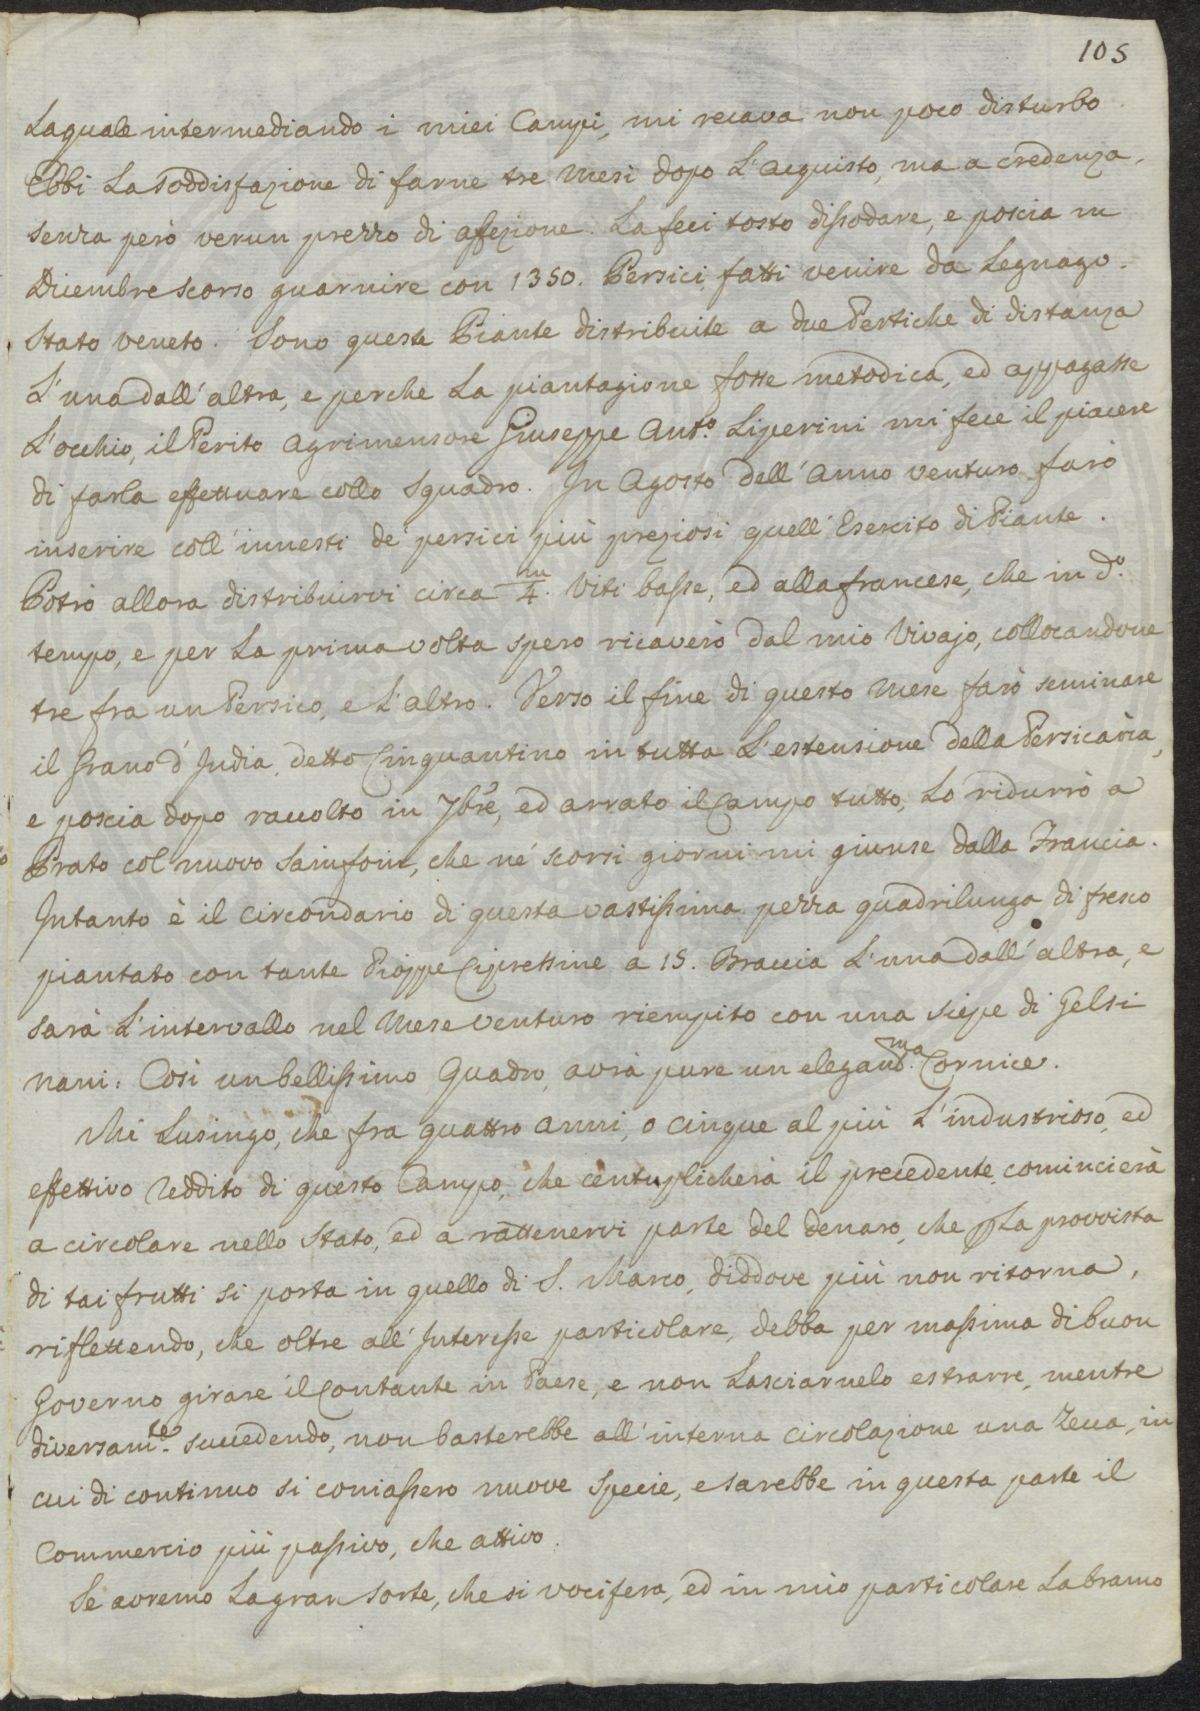 105
La quale intermediando i miei Campi, mi recava non poco disturbo.
Ebbi La soddisfazione di farne tre Mesi dopo L'acquisto, ma a credenza,
senza però verun prezzo di affezione. La feci tosto dissodare, e poscia in
Dicembre scorso guarnire con 1350. Persici fatti venire da Legnago.
Stato Veneto. Sono queste Piante distribuite a due Pertiche di distanza
L'una dall'altra, e perche La piantagione fosse metodica, ed appagasse
L'occhio, il Perito Agrimensore Giuseppe Ant.o Liperini mi fece il piacere
di farla effettuare collo Squadro. In Agosto dell'Anno venturo farò
inserire coll'innesti de' persici più preziosi quell'Esercito di Piante.
Potrò allora distribuirvi circa m/4. Viti basse, ed alla francese, che in d.o
tempo, e per La prima volta spero ricaverò dal mio Vivajo, collocandone
tre fra un Persico, e L'altro. Verso il fine di questo Mese farò seminare
il Grano d'India, detto Cinquantino in tutta L'estensione della Persicaria,
e poscia dopo raccolto in 7bre, ed arrato il Campo tutto, Lo ridurrò a
Prato col nuovo Sainfoin, che ne' scorsi giorni mi giunse dalla Francia.
Intanto è il circondario di questa vastissima pezza quadrilunga di fresco
piantato con tante Pioppe Cipressine a 15. Braccia L'una dall'altra, e
sarà L'intervallo nel Mese venturo riempito con una siepe di Gelsi
nani: Così un bellissimo Quadro, avrà pure un elegant.ma Cornice.
Mi Lusingo, che fra quattro anni, o cinque al più L'industrioso, ed
effettivo Reddito di questo Campo, che centuplicherà il precedente, comincierà
a circolare nello Stato, ed a rattenervi parte del denaro, che p La provvista
di tai frutti si porta in quello di S. Marco, diddove più non ritorna,
riflettendo, che oltre all'Interesse particolare, debba per massima di buon
Governo girare il Contante in Paese, e non Lasciarnelo estrarre, mentre
diversam.te succedendo, non basterebbe all'interna circolazione una Zecca, in
cui di continuo si coniassero nuove Specie, e sarebbe in questa parte il
Commercio più passivo, che attivo.
Se avremo La gran Sorte, che si vocifera, ed in mio particolare La bramo